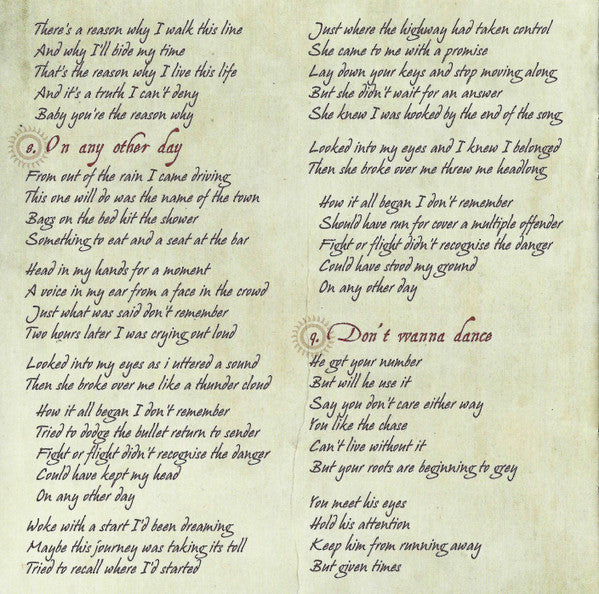 There's a reason why I walk this line
And why I'll bide my time
That's the reason why I live this life
And it's a truth I can't deny
Baby you're the reason why
8. On any other day
From out of the rain I came driving
This one will do was the name of the town
Bags on the bed hit the shower
Something to eat and a seat at the bar
Head in my hands for a moment
A voice in my ear from a face in the crowd
Just what was said don't remember
Two hours later I was crying out loud
Looked into my eyes as i uttered a sound
Then she broke over me like a thunder cloud
How it all began I don't remember
Tried to dodge the bullet return to sender
Fight or flight didn't recognise the danger
Could have kept my head
On any other day
Woke with a start I'd been dreaming
Maybe this journey was taking its toll
Tried to recall where I'd started
Just where the highway had taken control
She came to me with a promise
Lay down your keys and stop moving along
But she didn't wait for an answer
She knew I was hooked by the end of the song
Looked into my eyes and I knew I belonged
Then she broke over me threw me headlong
How it all began I don't remember
Should have run for cover a multiple offender
Fight or flight didn't recognise the danger
Could have stood my ground
On any other day
9. Don't wanna dance
He got your number
But will he use it
Say you don't care either way
You like the chase
Can't live without it
But your roots are beginning to grey
You meet his eyes
Hold his attention
Keep him from running away
But given times